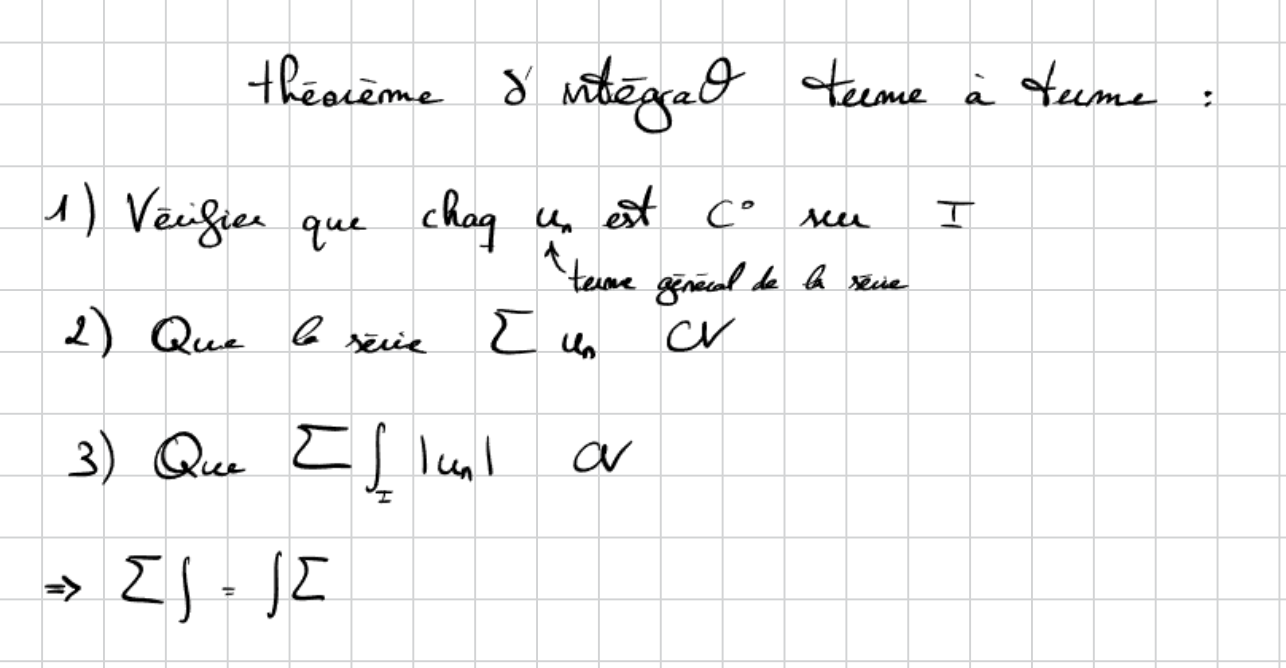 théorème d'intégraθ terme à terme :
1) Vérifier que chaq uₙ est C° sur I
↑ terme général de la série
2) Que la série Σ uₙ CV
3) Que Σ ∫_I |uₙ| CV
⇒ Σ∫ = ∫Σ